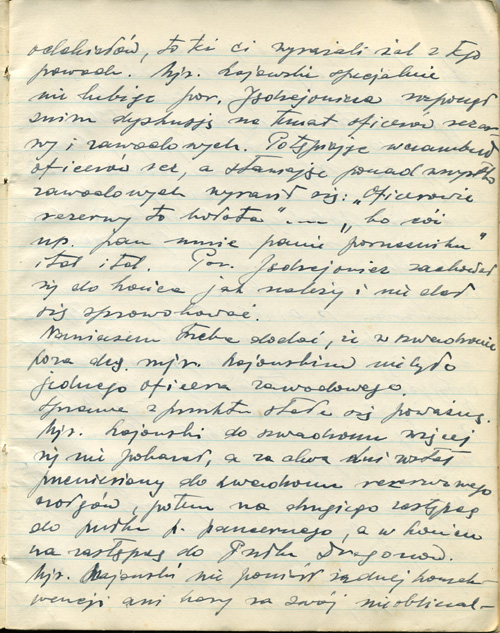 oddziałów, to też ci wyrażali żal z tego
powodu. Mjr. Majewski specjalnie
nie lubiąc por. Jędrzejowicza rozpoczął
z nim dyskusję na temat oficerów rezer
wy i zawodowych. Potępiając w czambuł
oficerów rez, a stawiając ponad wszystko
zawodowych wyraził się: „Oficerowie
rezerwy to hołota" ... „bo cóż
np. pan umie panie poruczniku"
itd itd. Por. Jędrzejowicz zachował
się do końca jak należy i nie dał
się sprowokować.
Nawiasem trzeba dodać, że w szwadronie
poza dcą mjr. Majewskim nie było
jednego oficera zawodowego
Sprawa z punktu stała się poważną.
Mjr. Majewski do szwadronu więcej
się nie pokazał, a za dwa dni został
przeniesiony do szwadronu rezerwowego
, potem na drugiego zastępcę
do pułku p. pancernego, a w końcu
na zastępcę do Pułku Dragonów.
Mjr. Majewski nie poniósł żadnej konsek-
wencji ani kary za swój nieobliczal-